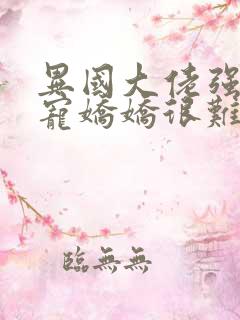 異國大佬强
寵嬌嬌很難
臨無無